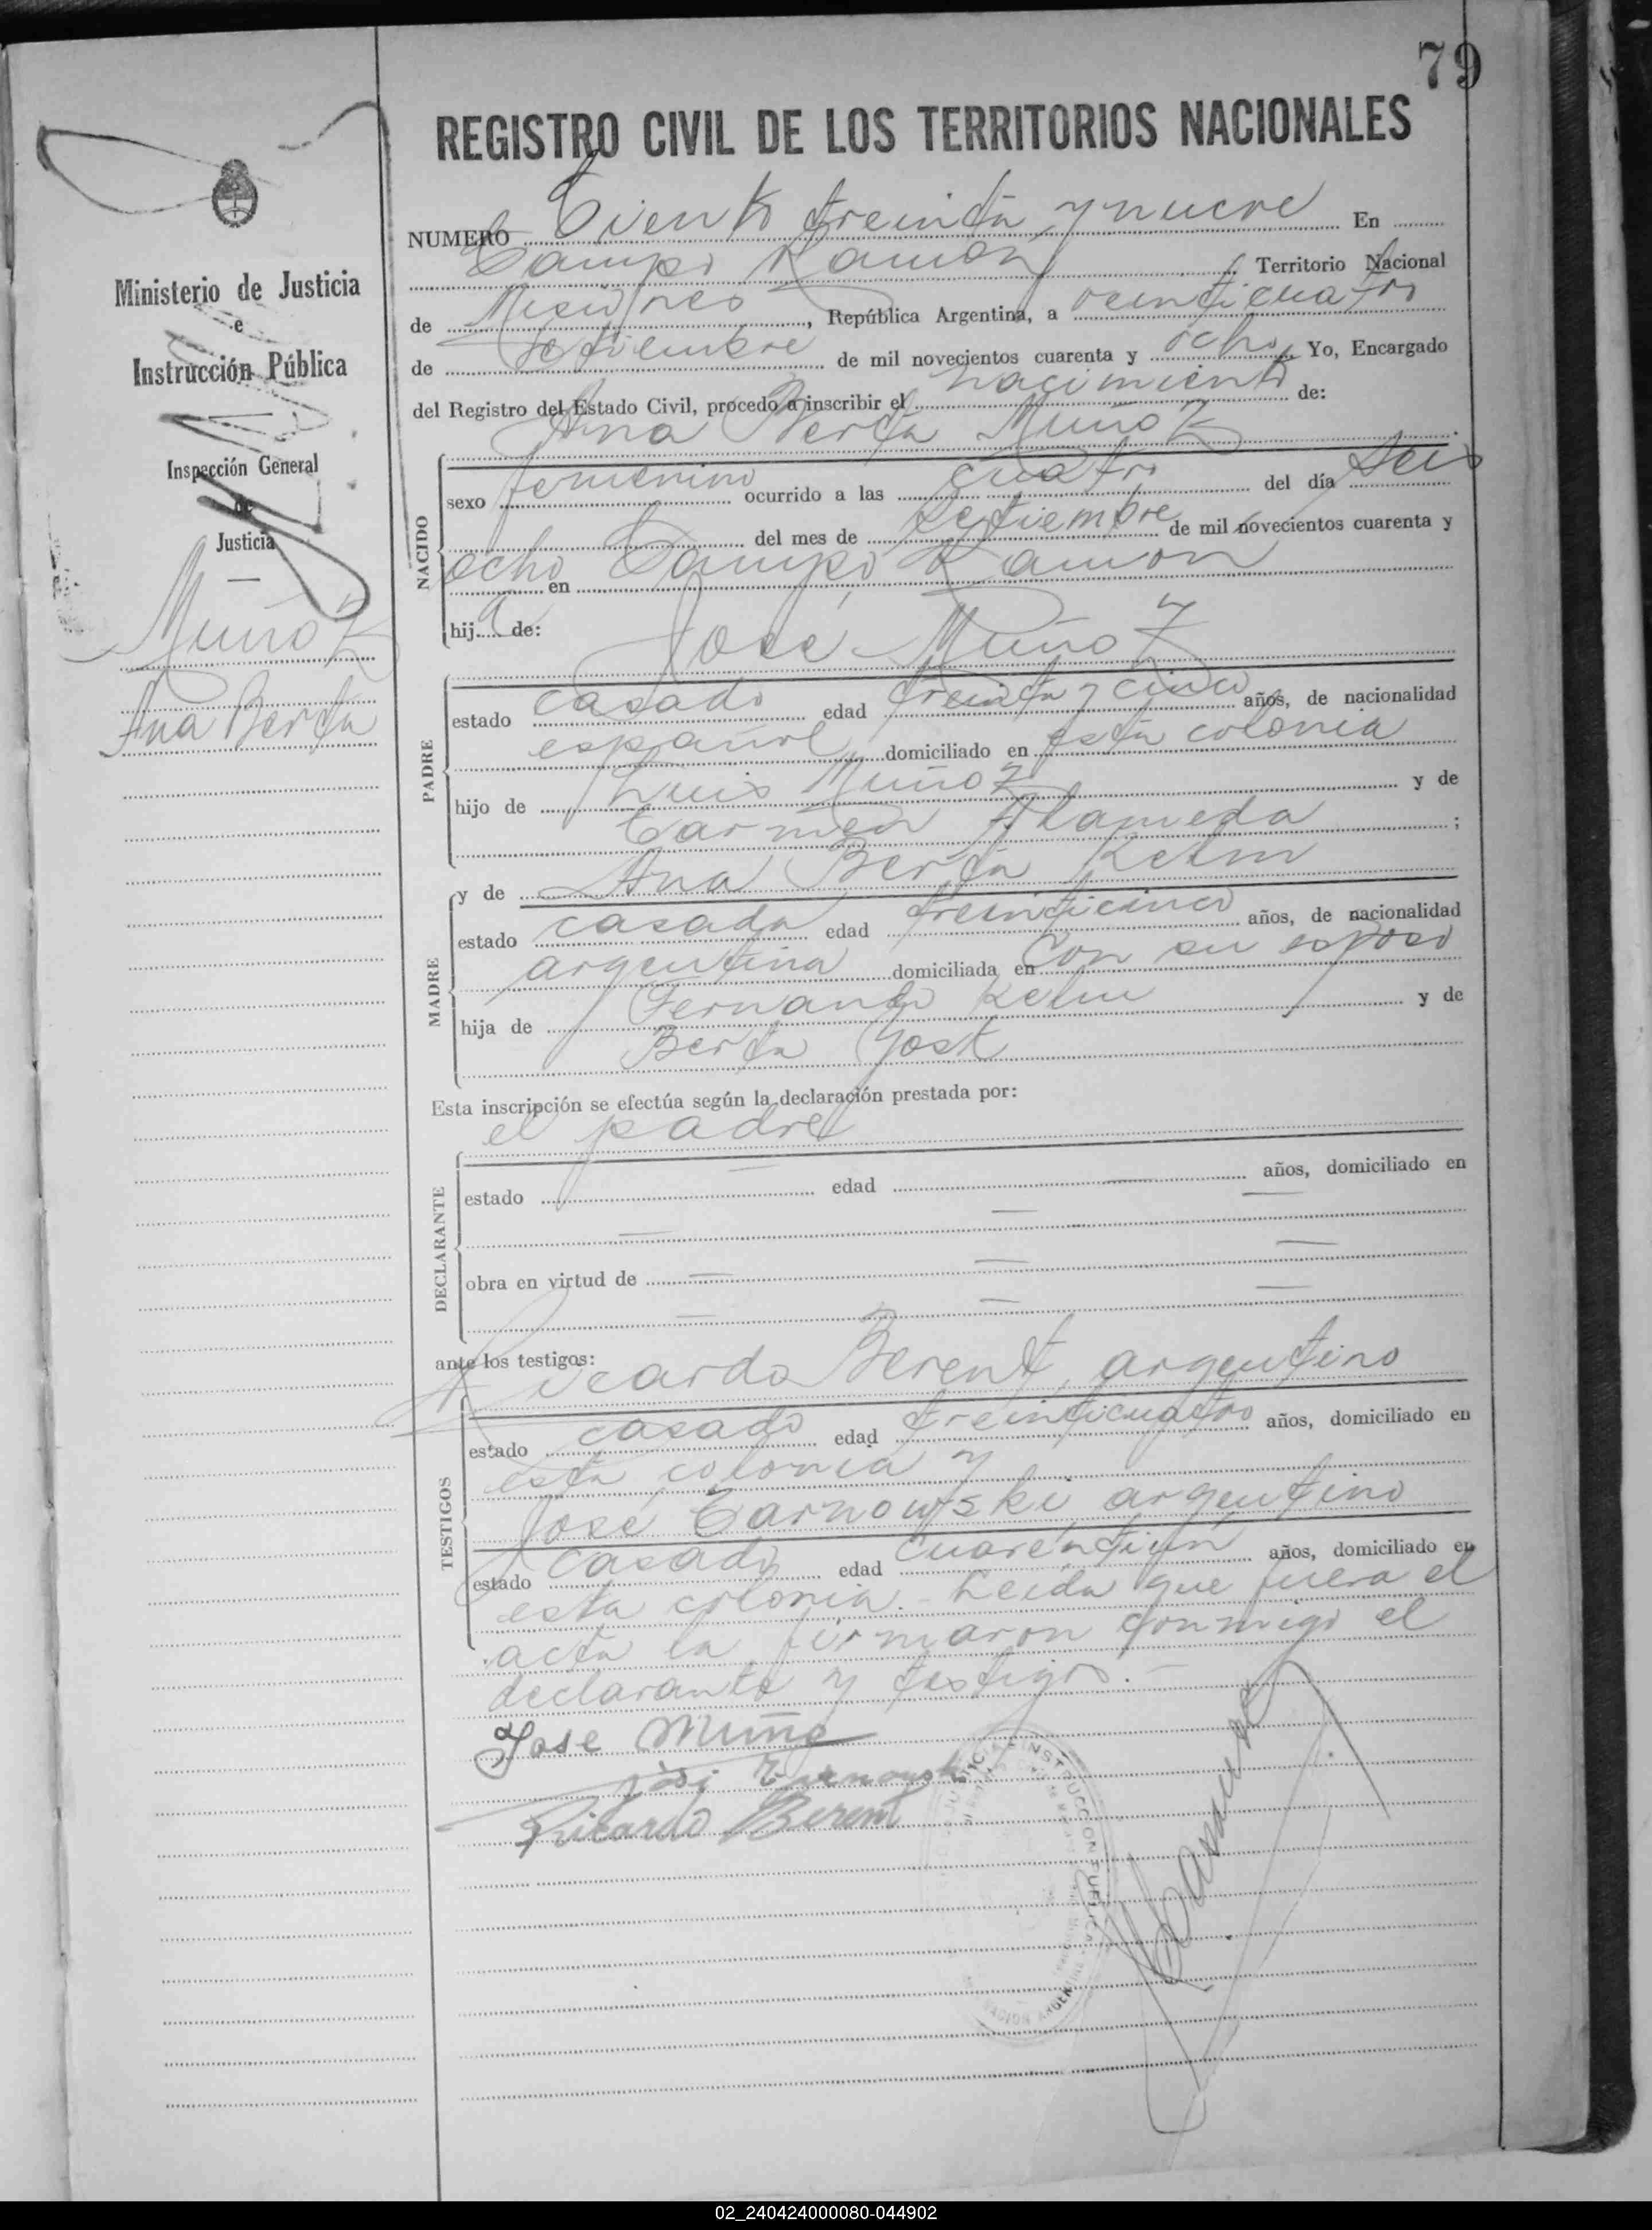 79
REGISTRO CIVIL DE LOS TERRITORIOS NACIONALES
NUMERO Ciento treinta y nueve En
Campo Ramón Territorio Nacional
de Misiones, República Argentina, a veinticuatro
de Setiembre de mil novecientos cuarenta y ocho, Yo, Encargado
del Registro del Estado Civil, procedo a inscribir el nacimiento de:
Ana Berta Muñoz
NACIDO
sexo femenino ocurrido a las cuatro del día seis
del mes de Setiembre de mil novecientos cuarenta y
ocho en Campo Ramón
hija de: José Muñoz
PADRE
estado casado edad treinta y cinco años, de nacionalidad
español domiciliado en esta colonia
hijo de Luis Muñoz y de
Carmen Alameda ;
y de Ana Berta Kelm
MADRE
estado casada edad treinticinco años, de nacionalidad
argentina domiciliada en con su esposo
hija de Fernando Kelm y de
Berta Jost
Esta inscripción se efectúa según la declaración prestada por:
el padre
DECLARANTE
estado — edad — años, domiciliado en
obra en virtud de —
ante los testigos: Ricardo Berent, argentino
TESTIGOS
estado casado edad treinticuatro años, domiciliado en
esta colonia y
José Carnowski, argentino
estado casado edad cuarentiun años, domiciliado en
esta colonia.- Leida que fuera el
acta la firmaron conmigo el
declarante y testigos.—
Jose Muño
Ricardo Berent
Ministerio de Justicia
e
Instrucción Pública
Inspección General
de
Justicia
Muñoz
Ana Berta
02_240424000080-044902